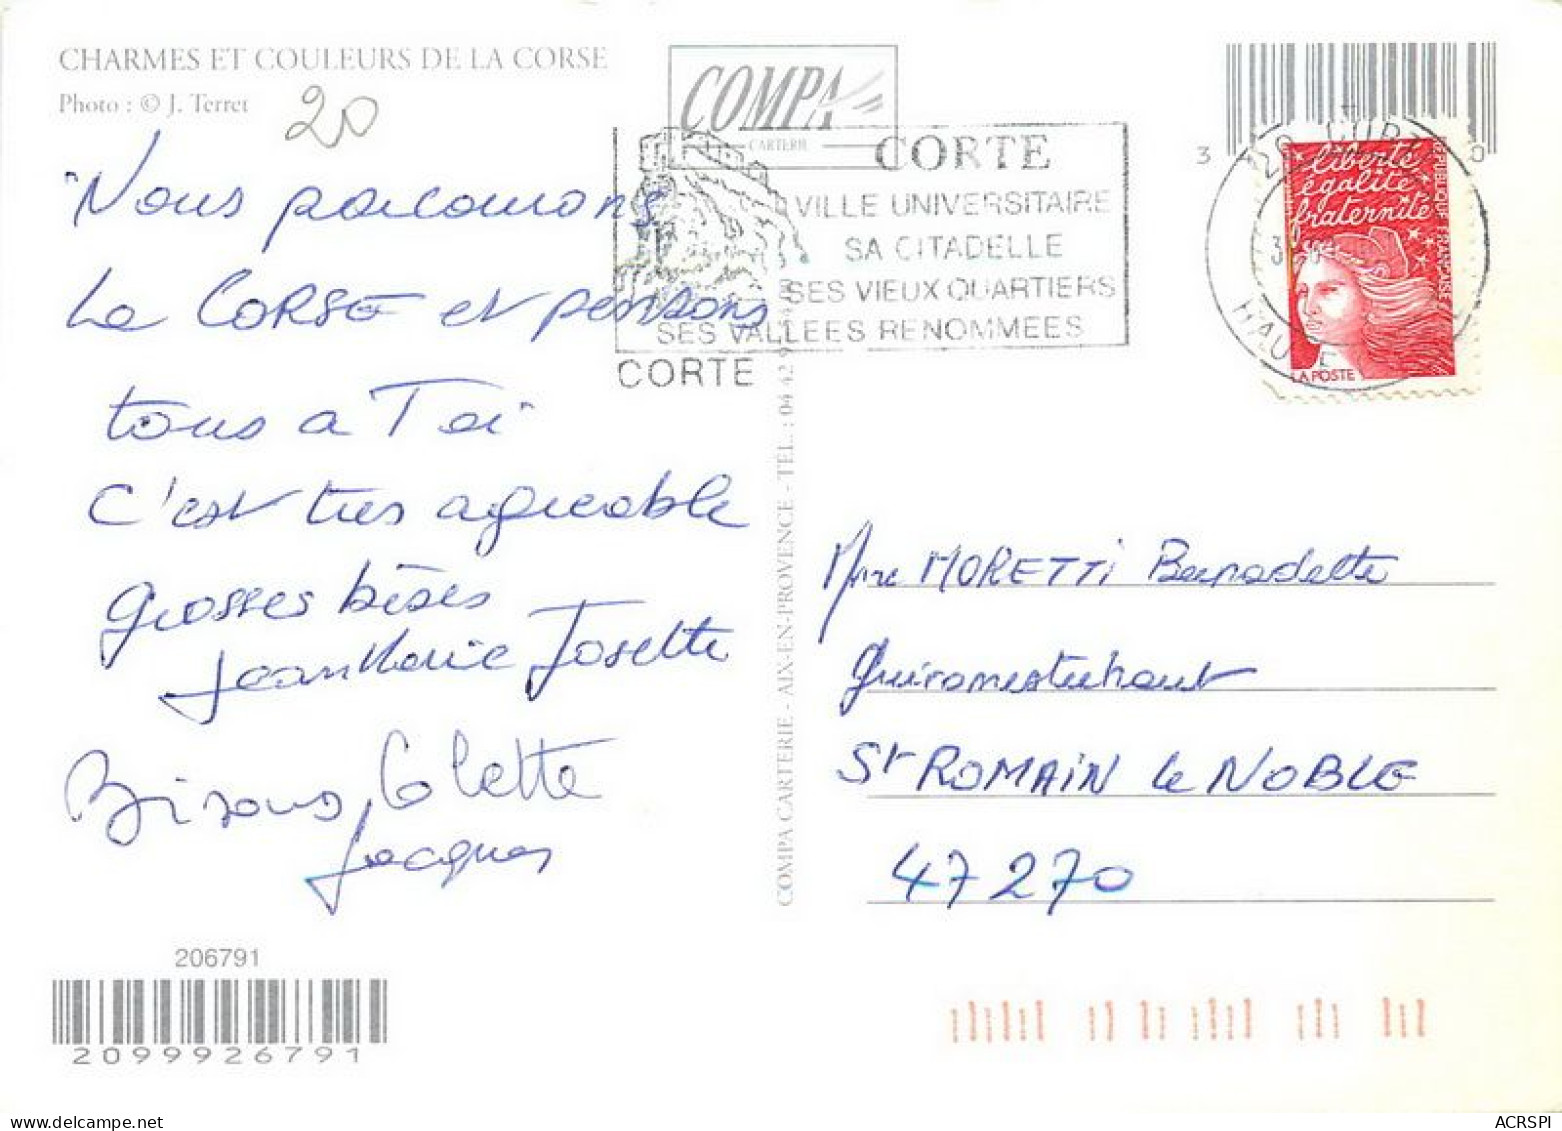 CHARMES ET COULEURS DE LA CORSE
Photo : © J. Terret
20
COMPA
CARTERIE
CORTE
VILLE UNIVERSITAIRE
SA CITADELLE
SES VIEUX QUARTIERS
SES VALLEES RENOMMEES
CORTE
3 0
20 CORTE
HAUTE
liberté
égalité
fraternité
REPUBLIQUE FRANÇAISE
LA POSTE
Nous parcourons
La CORSE et pensons
tous a Toi
C'est tres agreable
grosses bises
Jean Marie Josette
Bisous, Colette
Jacques
COMPA CARTERIE - AIX-EN-PROVENCE - TEL. : 04 42
Mme MORETTi Bernadette
St ROMAIN le NOBLE
47270
206791
2099926791
ACRSPI